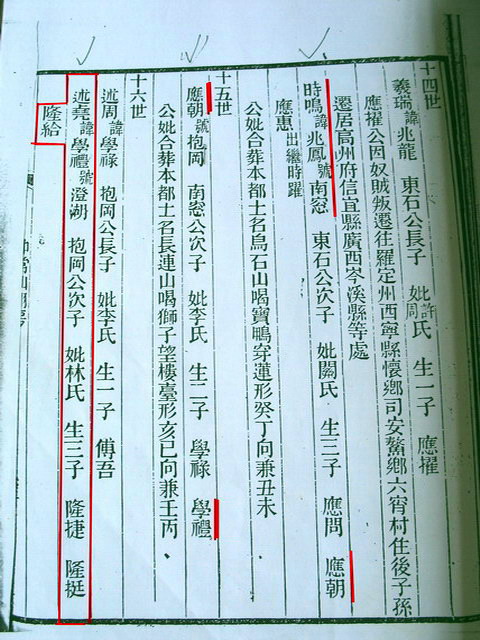 十四世
羲瑞諱兆龍 東石公長子 妣許周氏 生一子 應擢
應擢公因奴賊叛遷往羅定州西寧縣懷鄉司安鰲鄉六宵村住後子孫
遷居高州府信宜縣廣西岑溪縣等處
時鳴諱兆鳳號南窓 東石公次子 妣關氏 生三子 應問 應朝
應惠出繼時躍
公妣合葬本都土名烏石山喝寶鴨穿蓮形癸丁向兼丑未
十五世
應朝號抱岡 南窓公次子 妣李氏 生二子 學祿 學禮
公妣合葬本都土名長連山喝獅子望樓臺形亥巳向兼壬丙、
十六世
述周諱學祿 抱岡公長子 妣李氏 生一子 傅吾
述堯諱學禮號澄湖 抱岡公次子 妣林氏 生三子 隆捷 隆挺
隆給